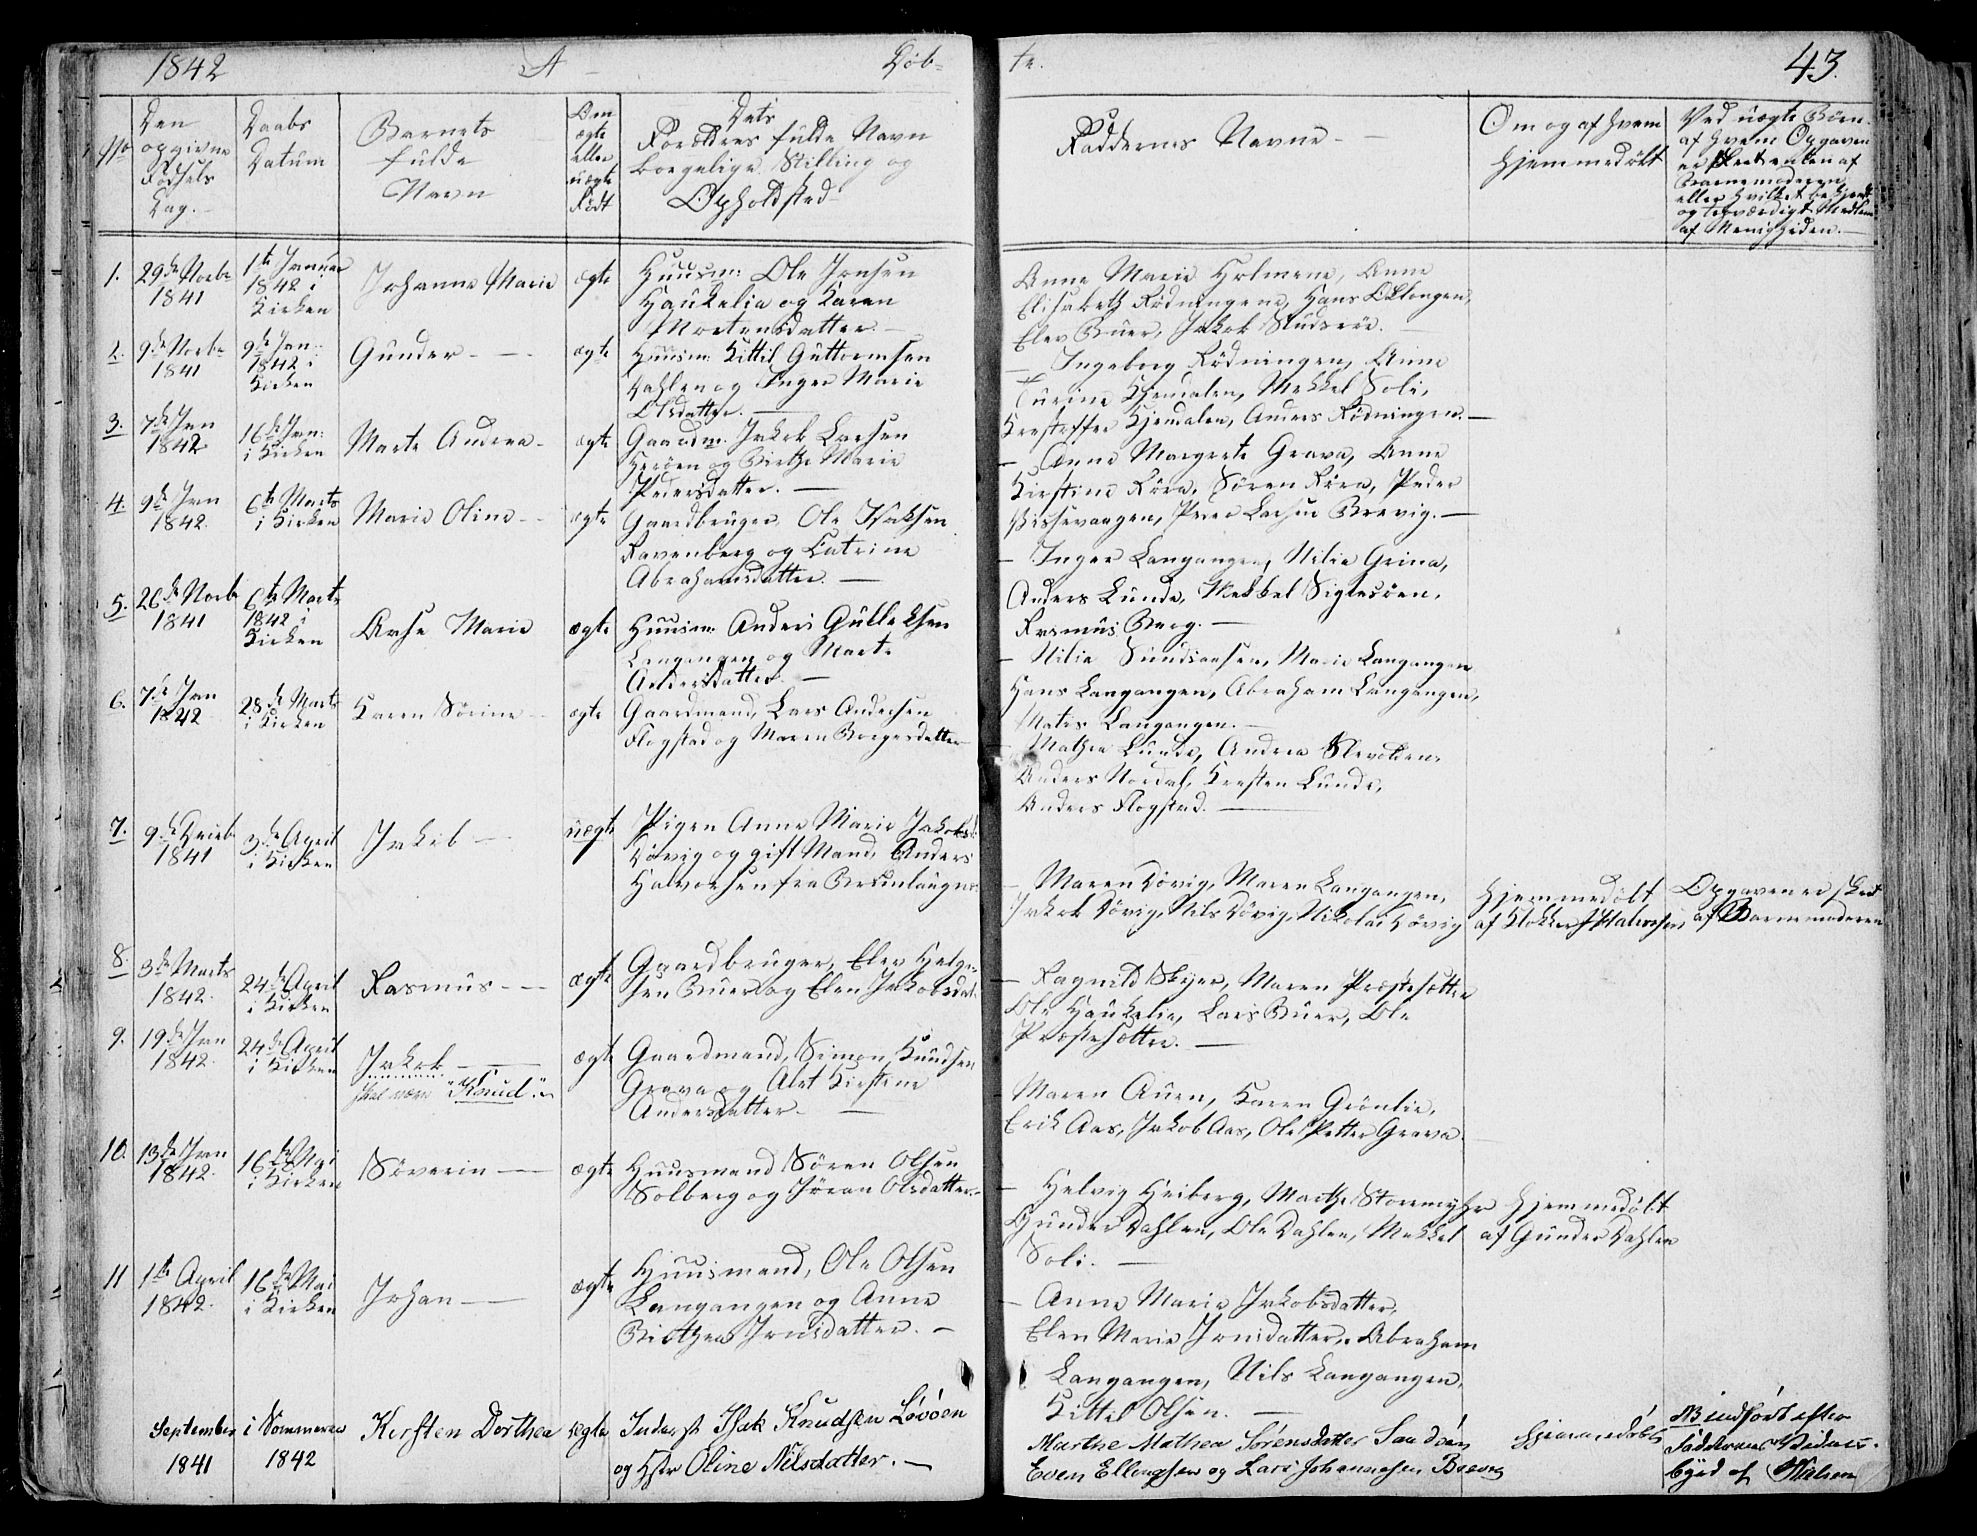 1842 A Døb-
te. 43.
No
Den opgivne Fødsels Dag.
Daabs Datum
Barnets fulde Navn
Om ægte eller uægte Født
Dets Forældres fulde Navn borgelige Stilling og Opholdsted
Faddernes Navne
Om og af hvem hjemmedøbt
Ved uægte Børn af hvem Opgaven er skeet enten af Barnemoderen eller hvilket bekjendt og troværdigt Medlem af Menigheden.
1. 29de Novbr 1841
1te Januar 1842 i Kirken
Johanne Marie
ægte
Huusm: Ole Jonsen
Haukelia og Karen
Mortensdatter.
Anne Marie Holmene, Anne
Elisabeth Rødningene, Hans Oklongen,
Elev Buer, Jakob Studsrøe.
2. 9de Novbr 1841
9de Jan: 1842 i Kirken
Gunder
ægte
Huusm: Kittil Guttormsen
Dahlen og Inger Marie
Olsdatter.
Ingeborg Rødningen, Anne
Turine Kjendalen, Mekkel Soli,
Kresteffer Kjendalen, Anders Rødningen.
3. 7de Jan 1842
16de Jan: i Kirken
Marte Andrea
ægte
Gaardm. Jakob Larsen
Herøen og Birthe Marie
Pedersdatter.
Anne Margrete Grava, Anne
Kirstine Røra, Søren Røra, Peder
Bissevangen, Peder Larsen Brevig.
4. 9de Jan 1842.
6te Marts i Kirken
Marie Oline
ægte
Gaardbruger Ole Isaksen
Ravenberg og Catrine
Abrahamsdatter.
Inger Langangen, Nilia Grina,
Anders Lunde, Mekkel Siglesøen,
Rasmus Berg.
5. 26de Novbr 1841
6te Marts 1842 i Kirken
Aase Marie
ægte
Huusm: Anders Gulleksen
Langangen og Marte
Andersdatter.
Nilia Sundsaasen, Marie Langangen
Hans Langangen, Abraham Langangen,
Mates Langangen.
6. 7de Jan 1842
28de Marts i Kirken
Karen Sørine
ægte
Gaardmand, Lars Andersen
Flogstad og Maren Borgesdatter
Mathea Lunde, Andrea Stevolden,
Anders Nordal, Kresten Lunde,
Anders Flogstad.
7. 9de Decbr 1841
3de April i Kirken
Jakob
uægte
Pigen Anne Marie Jakobsd:
Døvig og gift Mand, Anders
Halvorsen fra Brunlaugnes
Maren Døvig, Maren Langangen,
Jakob Døvig, Nils Døvig, Nikolai Døvig
Hjemmedøbt
af Klokker Halvorsen
Opgaven er skeet
af Barnemoderen
8. 3de Marts 1842.
24de April i Kirken
Rasmus
ægte
Gaardbruger, Elev Helge-
sen Buer og Elen Jakobsdat.
Ragnild Skjer, Maren Præstesætter
Ole Haukelie, Lars Buer, Ole
Præstesætter.
9. 19de Jan 1842.
24de April i Kirken
Jakob
skal være "Knud"
ægte
Gaardmand, Simon Knudsen
Grava og Alet Kirstine
Andersdatter.
Maren Auen, Karen Grønlie,
Erik Aas, Jakob Aas, Ole Petter Grava.
10. 13de Jan 1842.
16de Mai i Kirken
Søverin
ægte
Huusmand Søren Olsen
Solberg og Jøran Olsdatter.
Helvig Heiberg, Marthe Storemyhr
Gunder Dahlen, Ole Dahlen, Mekkel
Soli.
Hjemmedøbt
af Gunder Dahlen
11 1te April 1842.
16de Mai i Kirken
Johan
ægte
Huusmand, Ole Olsen
Langangen og Anne
Birthea Jonsdatter.
Anne Marie Jakobsdatter,
Elen Marie Jonsdatter, Abraham
Langangen, Nils Langangen,
Kittel Olsen.
September 1841
i Sommeren 1842
Kirsten Dorthea
ægte
Inderst Isak Knudsen Løvøen
og Hstr Oline Nilsdatter.
Marthe Mathea Sørensdatter Sandøen
Even Ellingsen og Lars Johannesen Brevig
Hjemmedøbt
NB indført efter
Faddernes Vidnes-
byrd af Nielsen